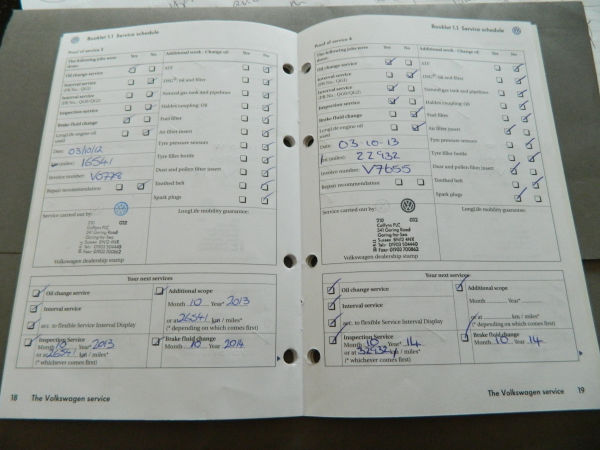 Booklet 1.1 Service schedule
Proof of service 3
The following jobs were done: Yes No
Oil change service
Interval service
(PR No.: QG0/QG2)
Inspection service
Brake fluid change
LongLife engine oil used
Date: 03/10/12
km/miles: 16541
Invoice number: V6778
Repair recommendation
Additional work - Change of: Yes No
ATF
DSG® oil and filter
Natural gas tank and pipelines
Haldex coupling: Oil
Fuel filter
Air filter insert
Tyre pressure sensors
Tyre filler bottle
Dust and pollen filter insert
Toothed belt
Spark plugs
Service carried out by:
LongLife mobility guarantee:
210 032
Caffyns PLC
341 Goring Road
Goring-by-Sea
Sussex BN12 4NX
Volkswagen dealership stamp
Your next services
Oil change service
Interval service
acc. to flexible Service Interval Display
Inspection Service
Month 10 Year* 2013
or at 26541 km / miles*
(* whichever comes first)
Additional scope
Month 10 Year* 2013
or at 26541 km / miles*
(* depending on which comes first)
Brake fluid change
Month 10 Year 2014
18 The Volkswagen service
Booklet 1.1 Service schedule
Proof of service 4
The following jobs were done: Yes No
Oil change service
Interval service
(PR No.: QG1)
Interval service
(PR No.: QG0/QG2)
Inspection service
Brake fluid change
LongLife engine oil used
Date: 03-10-13
km/miles: 22932
Invoice number: V7655
Repair recommendation
Additional work - Change of: Yes No
ATF
DSG® oil and filter
Natural gas tank and pipelines
Haldex coupling: Oil
Fuel filter
Air filter insert
Tyre pressure sensors
Tyre filler bottle
Dust and pollen filter insert
Toothed belt
Spark plugs
Service carried out by:
LongLife mobility guarantee:
210 032
Caffyns PLC
341 Goring Road
Goring-by-Sea
Sussex BN12 4NX
Volkswagen dealership stamp
Your next services
Oil change service
Interval service
acc. to flexible Service Interval Display
Inspection Service
Month 10 Year* 14
or at 32932 km / miles*
(* whichever comes first)
Additional scope
Month Year*
or at km / miles*
(* depending on which comes first)
Brake fluid change
Month 10 Year 14
The Volkswagen service 19